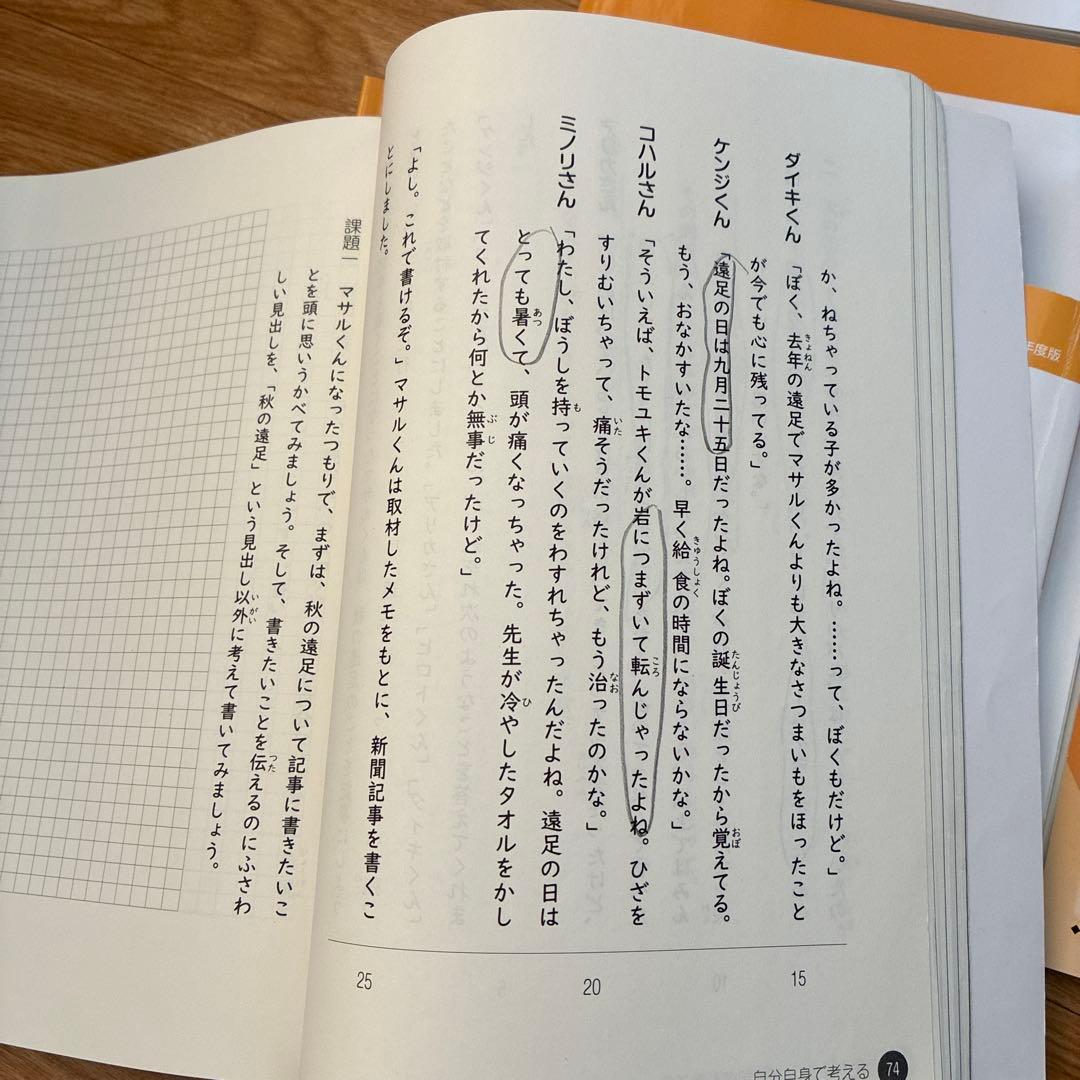 か、ねちゃっている子が多かったよね。……って、ぼくもだけど。」
ダイキくん 「ぼく、去年の遠足でマサルくんよりも大きなさつまいもをほったこと
きょねん
が今でも心に残ってる。」
ケンジくん 「遠足の日は九月二十五日だったよね。ぼくの誕生日だったから覚えてる。
たんじょうび おぼ
もう、おなかすいたな……。早く給食の時間にならないかな。」
きゅうしょく
コハルさん 「そういえば、トモユキくんが岩につまずいて転んじゃったよね。ひざを
ころ
すりむいちゃって、痛そうだったけれど、もう治ったのかな。」
いた なお
ミノリさん 「わたし、ぼうしを持っていくのをわすれちゃったんだよね。遠足の日は
も
とっても暑くて、頭が痛くなっちゃった。先生が冷やしたタオルをかし
あつ ひ
てくれたから何とか無事だったけど。」
ぶじ
「よし。これで書けるぞ。」マサルくんは取材したメモをもとに、新聞記事を書くこ
とにしました。
課題一 マサルくんになったつもりで、まずは、秋の遠足について記事に書きたいこ
とを頭に思いうかべてみましょう。そして、書きたいことを伝えるのにふさわ
つた
しい見出しを、「秋の遠足」という見出し以外に考えて書いてみましょう。
いがい
15
20
25
自分自身で考える 74
年度版